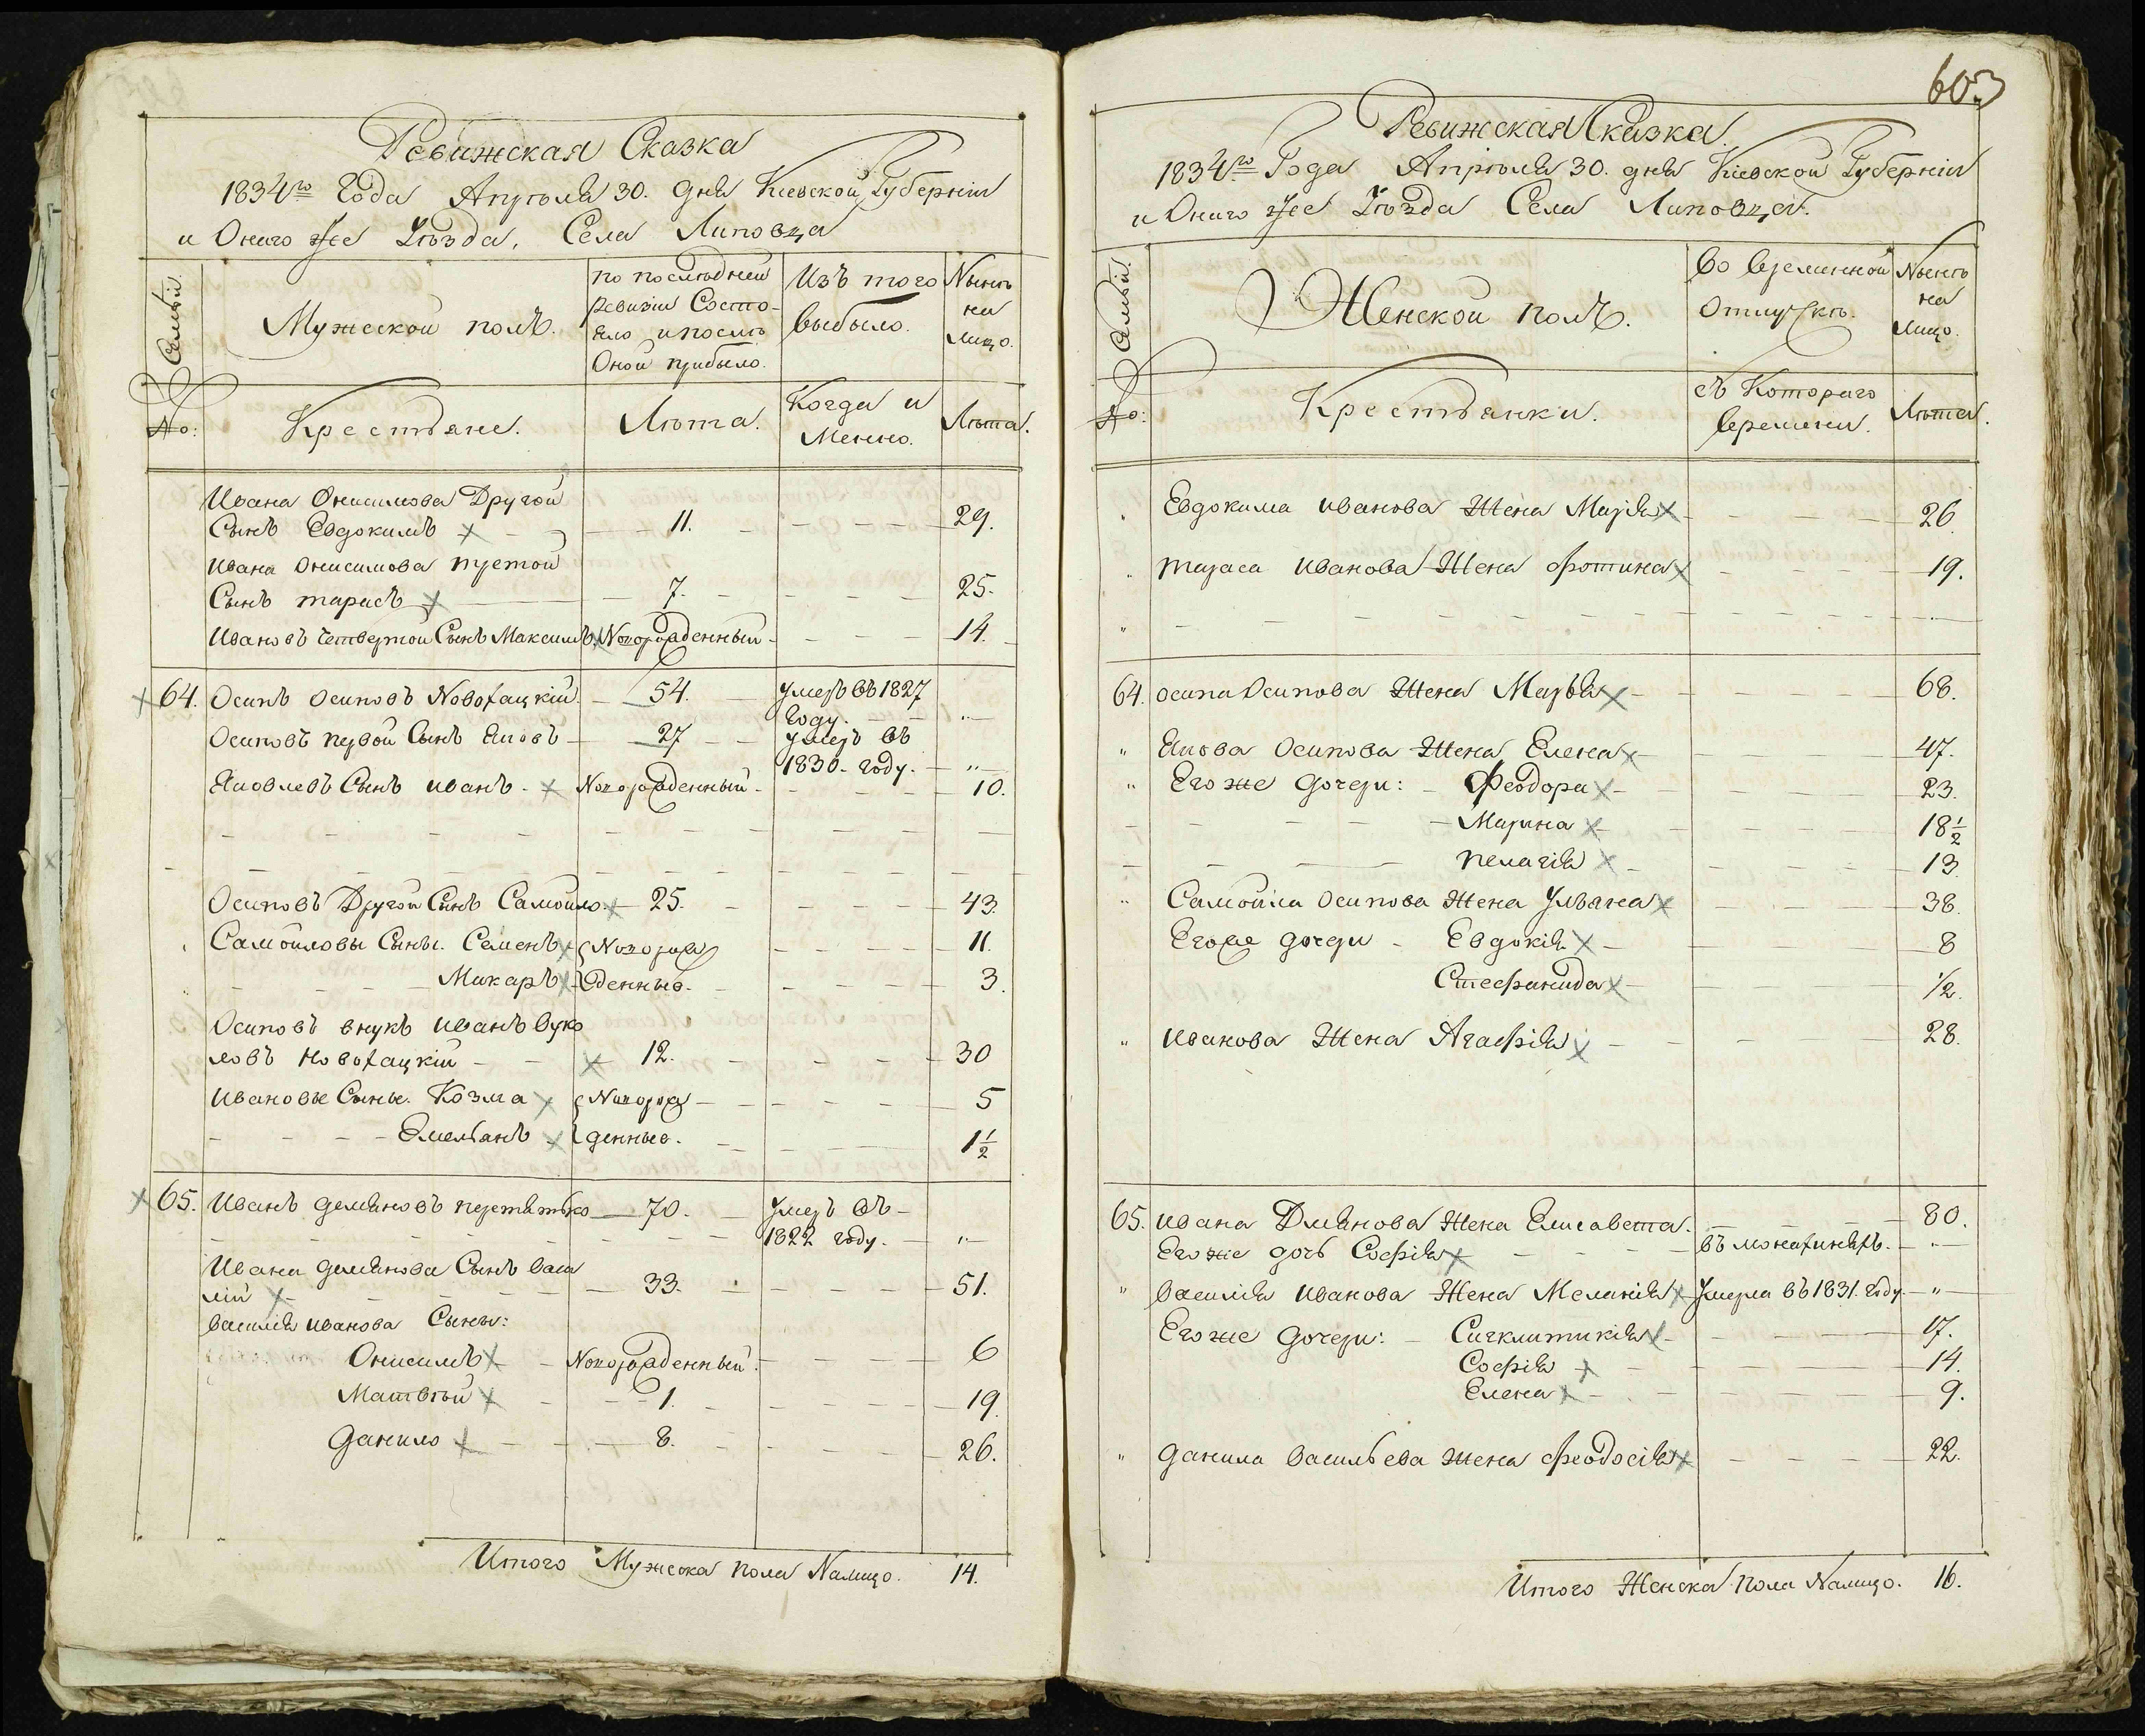 Ревижская Сказка
1834го Года Апрѣля 30. дня Кіевской Губерніи
и Онаго же Уѣзда, Села Липовца
Семьи.
Мужеской полъ.
по послѣдней
ревизіи Состо-
яло и послѣ
Оной прибыло.
Изъ того
выбыло.
Нынѣ
на
лицо.
No:
Крестьяне.
Лѣта.
Когда и
Менно.
Лѣта.
Ивана Онисимова Другой
Сынъ Евдокимъ 11. 29.
Ивана Онисимова третой
Сынъ тарасъ 7. 25.
Ивановъ четвертой Сынъ Максимъ Новорожденный 14.
64. Осипъ Осиповъ Новохацкій 54. умеръ въ 1827
году. "
Осиповъ первой Сынъ Яковъ 27 умеръ въ
1830. году. "
Яковлевъ Сынъ иванъ. Новорожденный 10.
Осиповъ Другой Сынъ Самойло 25. 43.
Самойловы Сыны. Семенъ Новорож 11.
Макаръ денные. 3.
Осиповъ внукъ Иванъ Вуко
ловъ Новохацкій 12. 30
Ивановы Сыны. Козма Новорож 5
Емельянъ денные. 1 1/2
65. Иванъ демяновъ перетятко 70. умеръ въ
1822 году. "
Ивана демянова Сынъ васи
лій 33. 51.
василія иванова Сыны:
Онисимъ Новорожденный 6
Матвѣй 1. 19.
данило 8. 26.
Итого Мужеска пола Налицо. 14.
603
Ревижская Сказка.
1834го Года Апрѣля 30. дня Кіевской Губерніи
и Онаго же Уѣзда Села Липовца.
Семьи.
Женской полъ.
Во временной
отлучкѣ.
Нынѣ
на
лицо.
No:
Крестьянки.
съ Котораго
времени.
Лѣта.
Евдокима иванова Жена Марія 26
тараса иванова Жена фотина 19.
64. осипа Осипова Жена Марья 68.
" Якова Осипова Жена Елена 47.
" Его же дочери: Феодора 23.
Марина 18 1/2
пелагія 13.
" Самойла Осипова Жена Ульяна 38.
Егоже дочери Евдокія 8
Стефанида 1/2.
" Иванова Жена Агафія 28.
65. ивана Демянова Жена Елисавета. 80.
Его же дочь Софія въ монахиняхъ. "
" василія иванова Жена Меланія Умерла въ 1831. году. "
Его же дочери: Сигклитикія 17.
Софія 14.
Елена 9.
" данила васильева жена феодосія 22.
Итого Женска пола Налицо. 16.